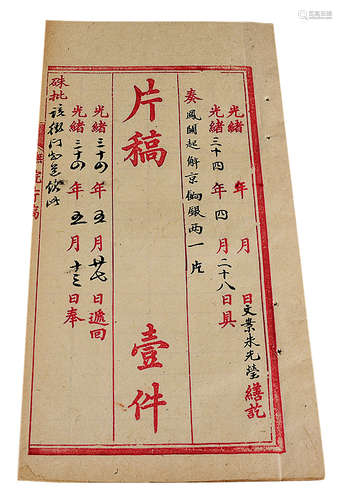 光緒 年 月 日文案朱光瑩繕訖
光緒三十四年四月二十八日具
奏鳳關起解京餉銀兩一片
片稿 壹件
光緒三十四年五月廿七日遞回
光緒三十四年五月十三日奉
硃批該衙門知道欽此